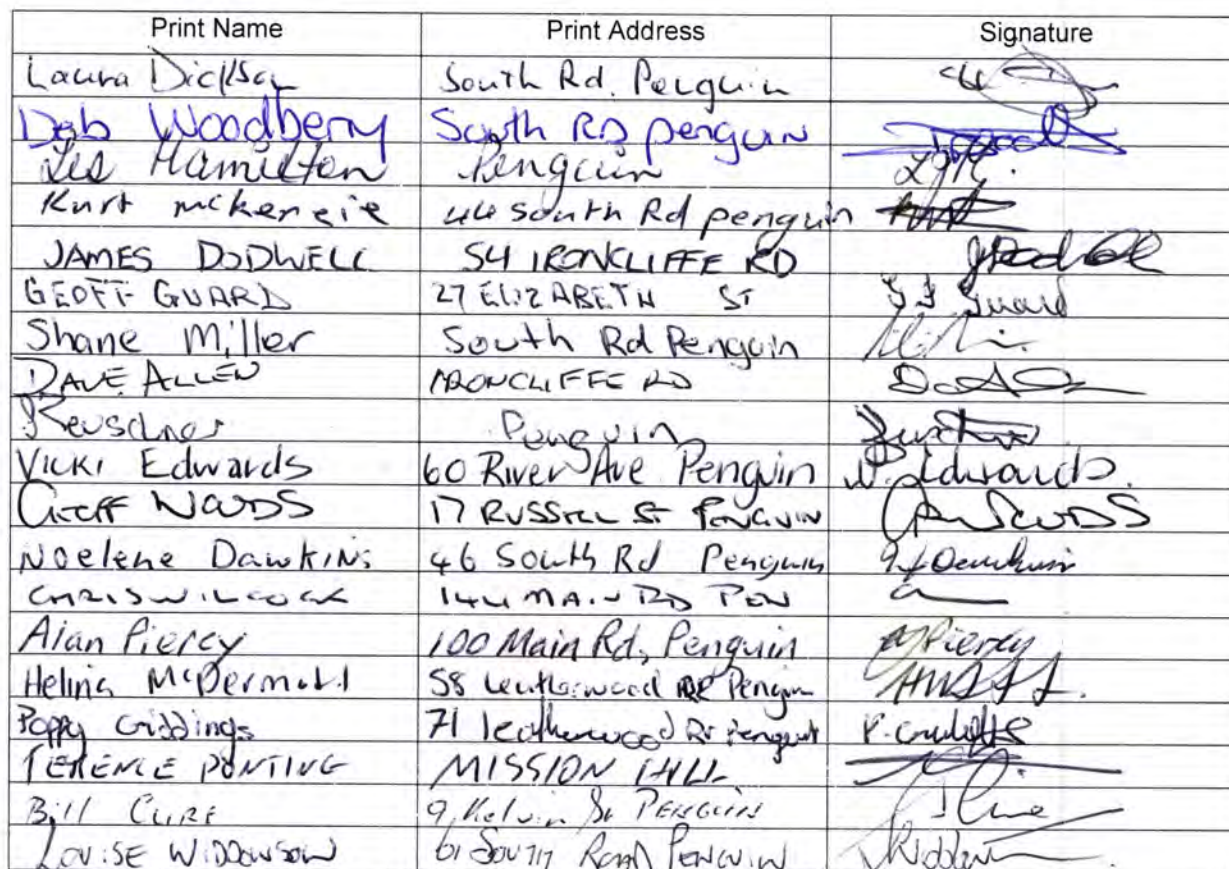 Print Name Print Address Signature
Laura Dickson South Rd. Penguin
Deb Woodberry South RD penguin
Les Hamilton Penguin
Kurt mckenzie 44 South Rd penguin
JAMES DODWELL 54 IRONCLIFFE RD
GEOFF GUARD 27 ELIZABETH ST G J Guard
Shane Miller South Rd Penguin
DAVE ALLEN IRONCLIFFE RD
Penguin
Vicki Edwards 60 River Ave Penguin V. Edwards.
GEOFF WOODS 17 RUSSELL ST PENGUIN
Noelene Dawkins 46 South Rd Penguin
CHRIS WILCOCK 144 MAIN RD PEN
Alan Piercy 100 Main Rd, Penguin Piercy
Helina McDermott 58 Leatherwood DR Penguin
Poppy Giddings 71 leatherwood Dr Penguin
TERENCE PONTING MISSION HILL
Bill CURE 9 Kelvin St PENGUIN
LOUISE WIDDOWSON 61 SOUTH ROAD PENGUIN